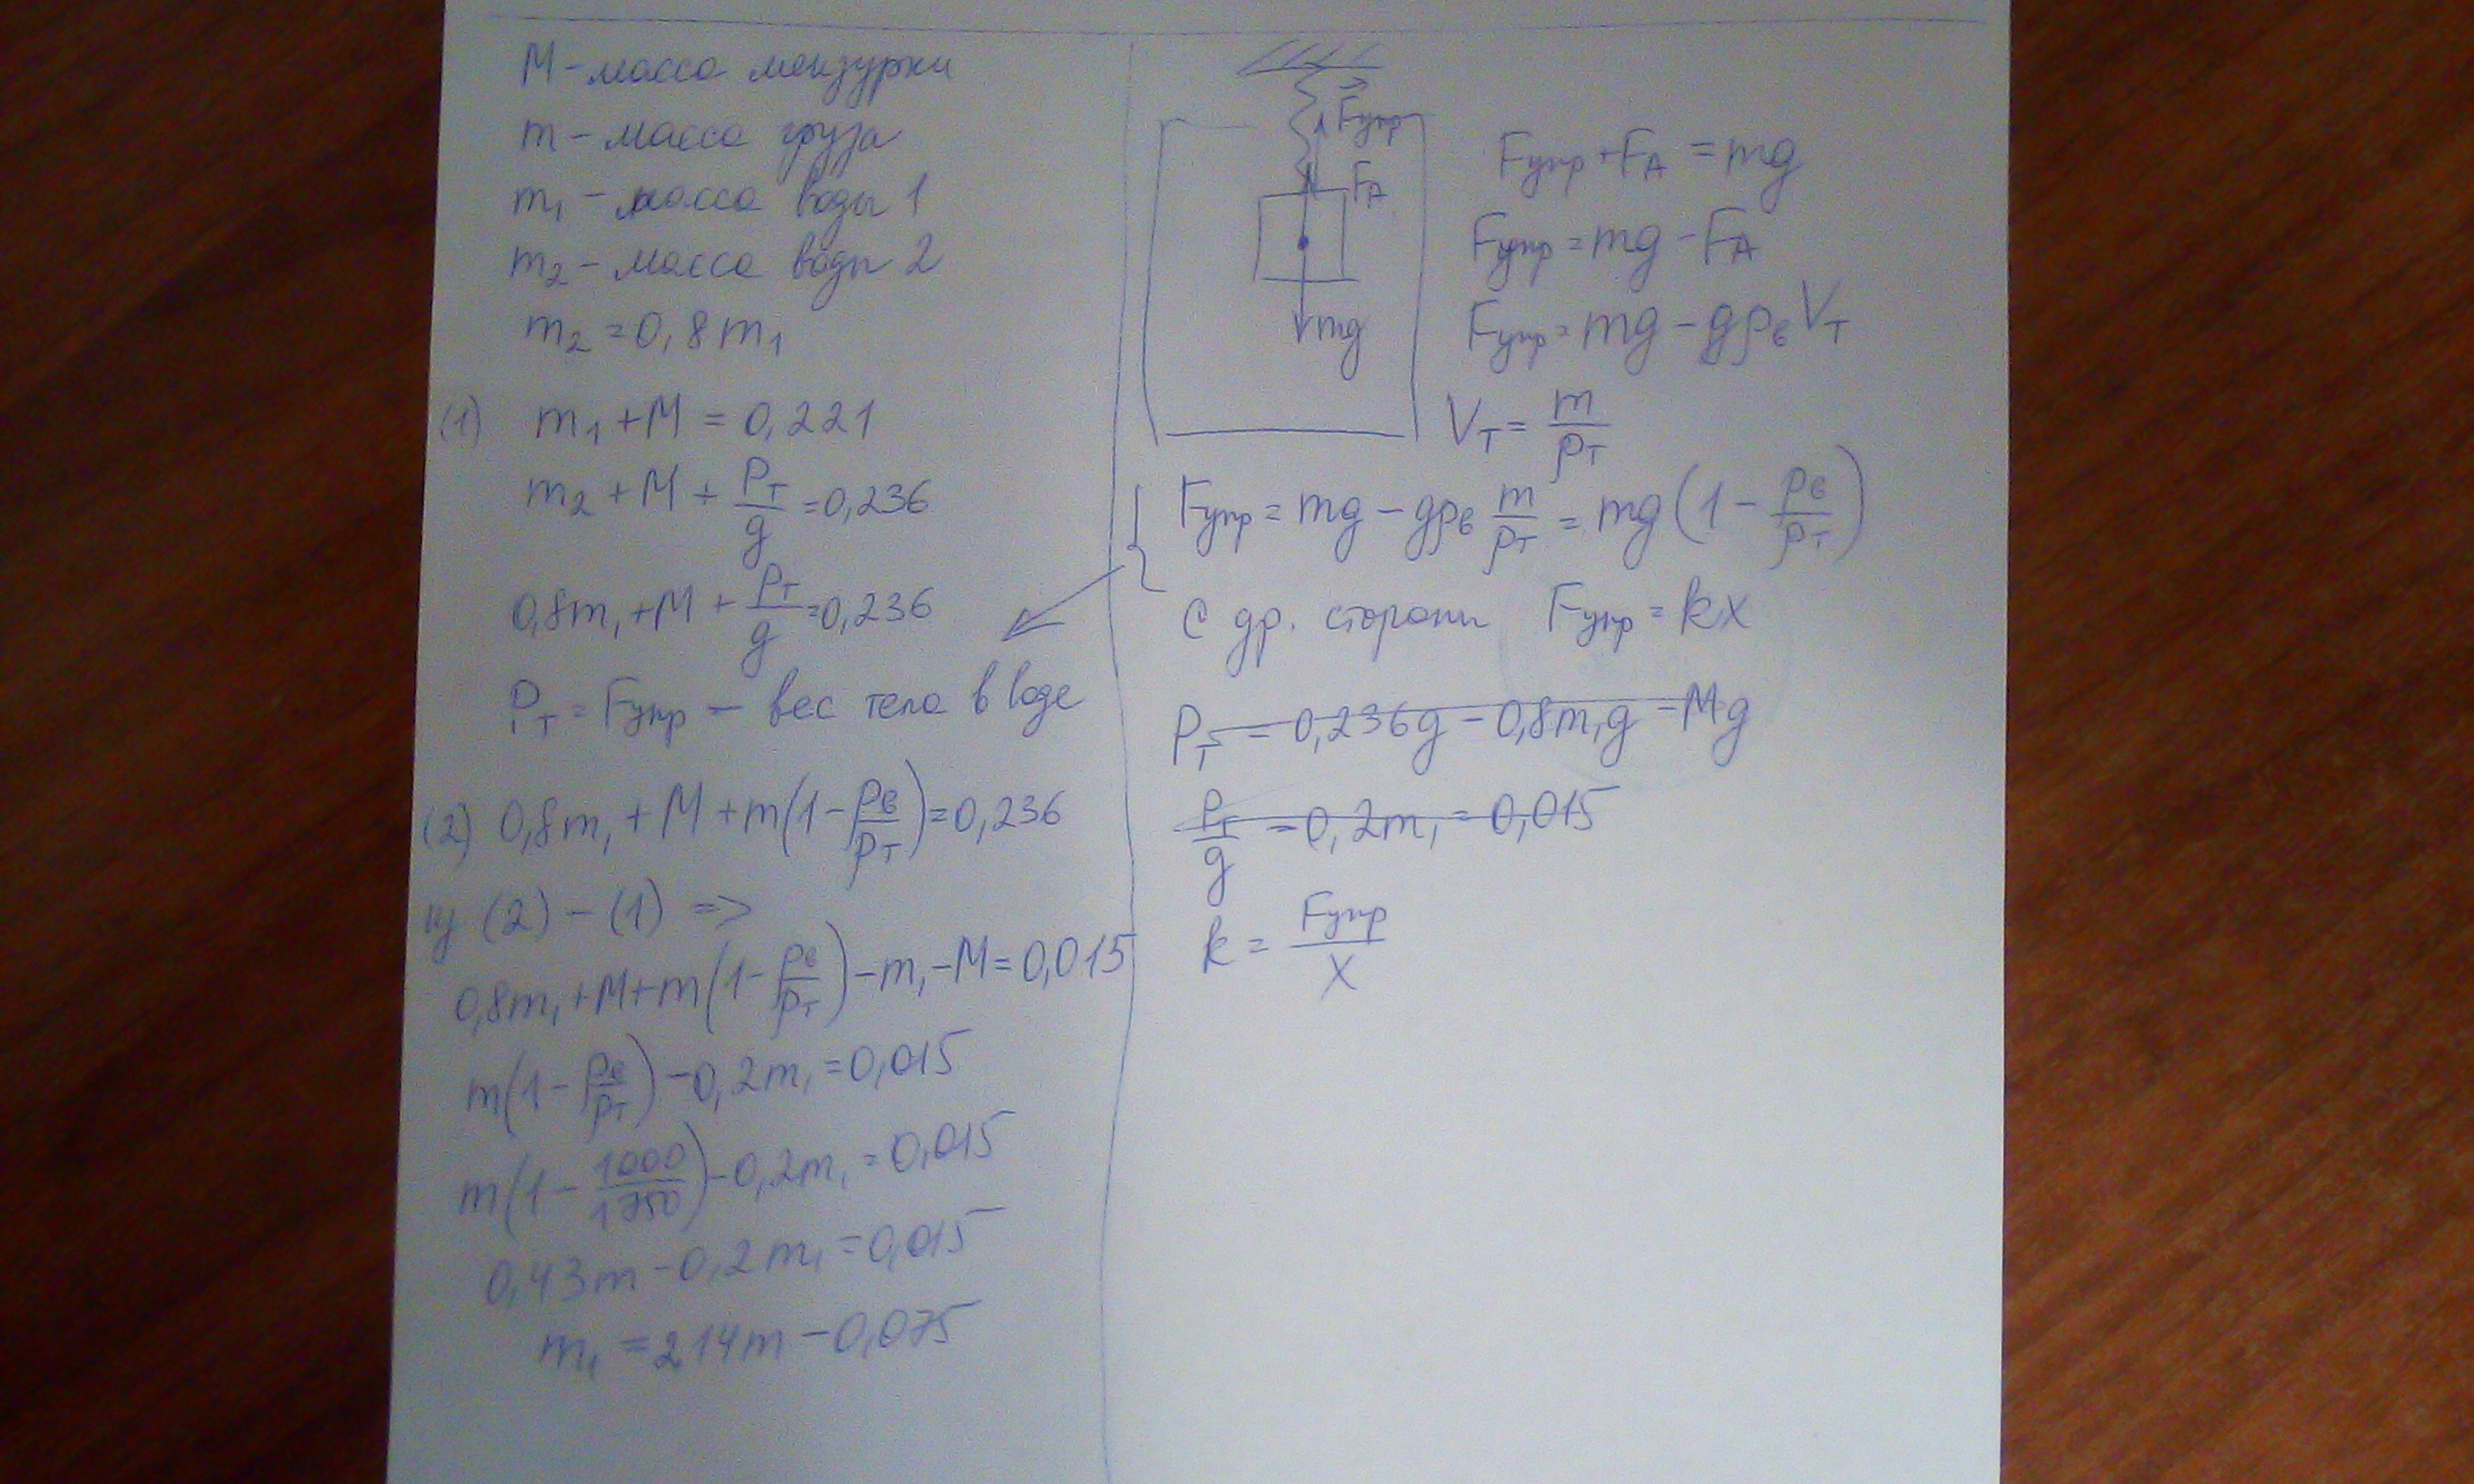 M – масса мензурки
m – масса груза
m₁ – масса воды 1
m₂ – масса воды 2
m₂ = 0,8 m₁
(1) m₁ + M = 0,221
m₂ + M + Pт/g = 0,236
0,8m₁ + M + Pт/g = 0,236
Pт = Fупр – вес тела в воде
(2) 0,8m₁ + M + m(1 - ρв/ρт) = 0,236
из (2) – (1) =>
0,8m₁ + M + m(1 - ρв/ρт) - m₁ - M = 0,015
m(1 - ρв/ρт) - 0,2m₁ = 0,015
m(1 - 1000/1750) - 0,2m₁ = 0,015
0,43m - 0,2m₁ = 0,015
m₁ = 2,14m - 0,075
Fупр
FA
mg
Fупр + FA = mg
Fупр = mg - FA
Fупр = mg - gρв Vт
Vт = m/ρт
Fупр = mg - gρв m/ρт = mg(1 - ρв/ρт)
С др. стороны Fупр = kx
Pт = 0,236g - 0,8m₁g - Mg
Pт/g - 0,2m₁ = 0,015
k = Fупр/x